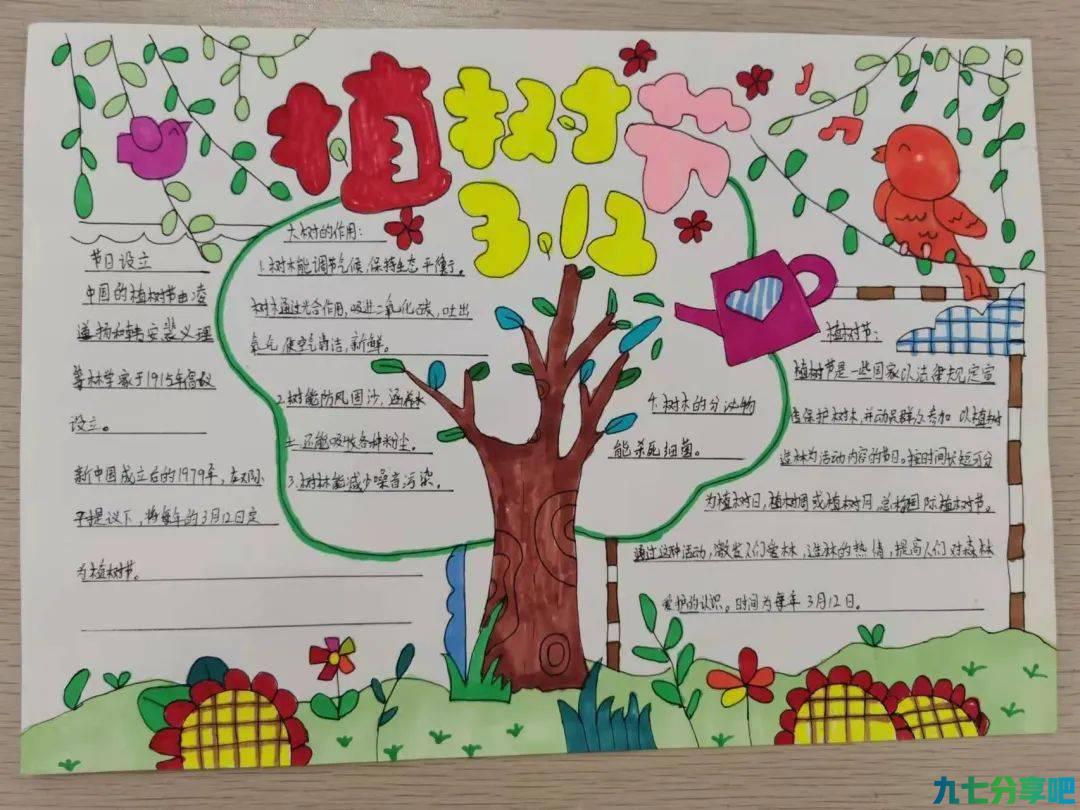 植树节
3.12
节日设立
中国的植树节由凌
道扬和韩安裴义理
等林学家于1915年倡议
设立。
新中国成立后的1979年,在邓小
平提议下,将每年的3月12日定
为植树节。
大树的作用:
1.树木能调节气候,保持生态平衡。
树木通过光合作用,吸进二氧化碳,吐出
氧气,使空气清洁,新鲜。
2.树能防风固沙,涵养水
土,还能吸收各种粉尘。
3.树林能减少噪音污染。
4.树木的分泌物
能杀死细菌。
植树节:
植树节是一些国家以法律规定宣
传保护树木,并动员群众参加以植树
造林为活动内容的节日。按时间长短可分
为植树日,植树周或植树月,总称国际植树节。
通过这种活动,激发人们爱林、造林的热情,提高人们对森林
爱护的认识。时间为每年3月12日。
九七分享吧